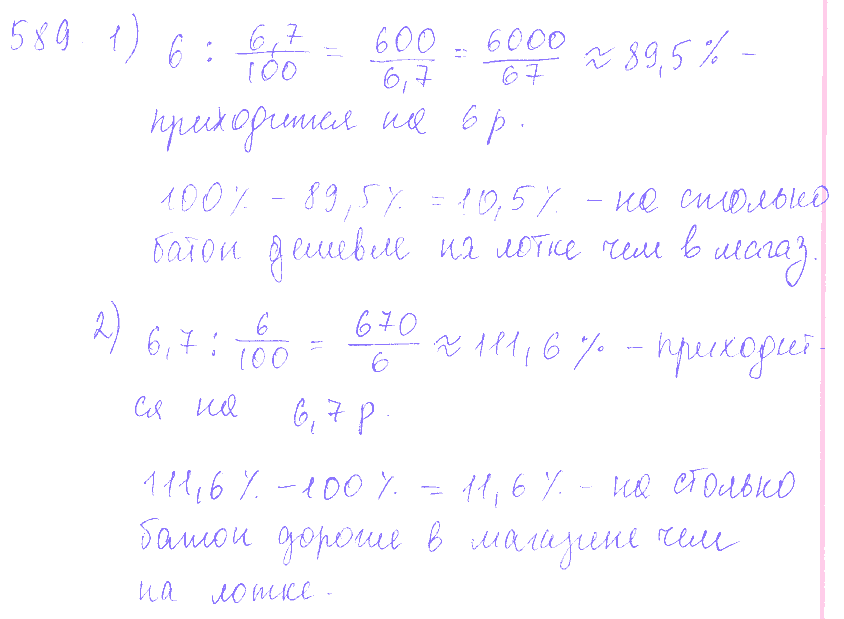 589. 1) 6 : 6,7/100 = 600/6,7 = 6000/67 ≈ 89,5% –
приходится на 6 р.
100% – 89,5% = 10,5% – на столько
батон дешевле на лотке чем в магаз.
2) 6,7 : 6/100 = 670/6 ≈ 111,6% – приходит-
ся на 6,7 р.
111,6% – 100% = 11,6% – на столько
батон дороже в магазине чем
на лотке.